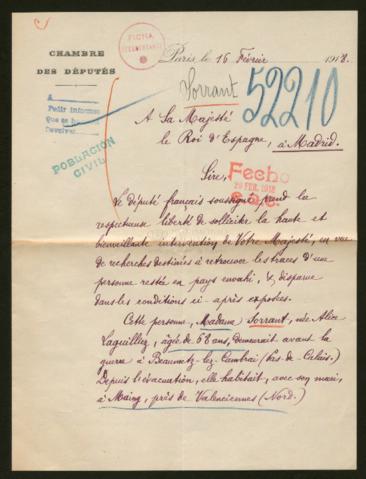 CHAMBRE
DES DÉPUTÉS
FICHA
Paris, le 16 Février 1918.
Sorrant
52210
A
Pedir informes
Que se ha
POBLACIÓN
CIVIL
A Sa Majesté
le Roi d'Espagne, à Madrid.
Sire,
Fecho
20 FEB. 1918
Le député français soussigné prend la
respectueuse liberté de solliciter la haute et
bienveillante intervention de Votre Majesté, en vue
de recherches destinées à retrouver les traces d'une
personne restée en pays envahi, & disparue
dans les conditions ci-après exposées.
Cette personne, Madame Sorrant, née Alice
Laguilliez, âgée de 68 ans, demeurait avant la
guerre à Beaumetz-lez-Cambrai (Pas-de-Calais.)
Depuis l'évacuation, elle habitait, avec son mari,
à Maing, près de Valenciennes (Nord.)